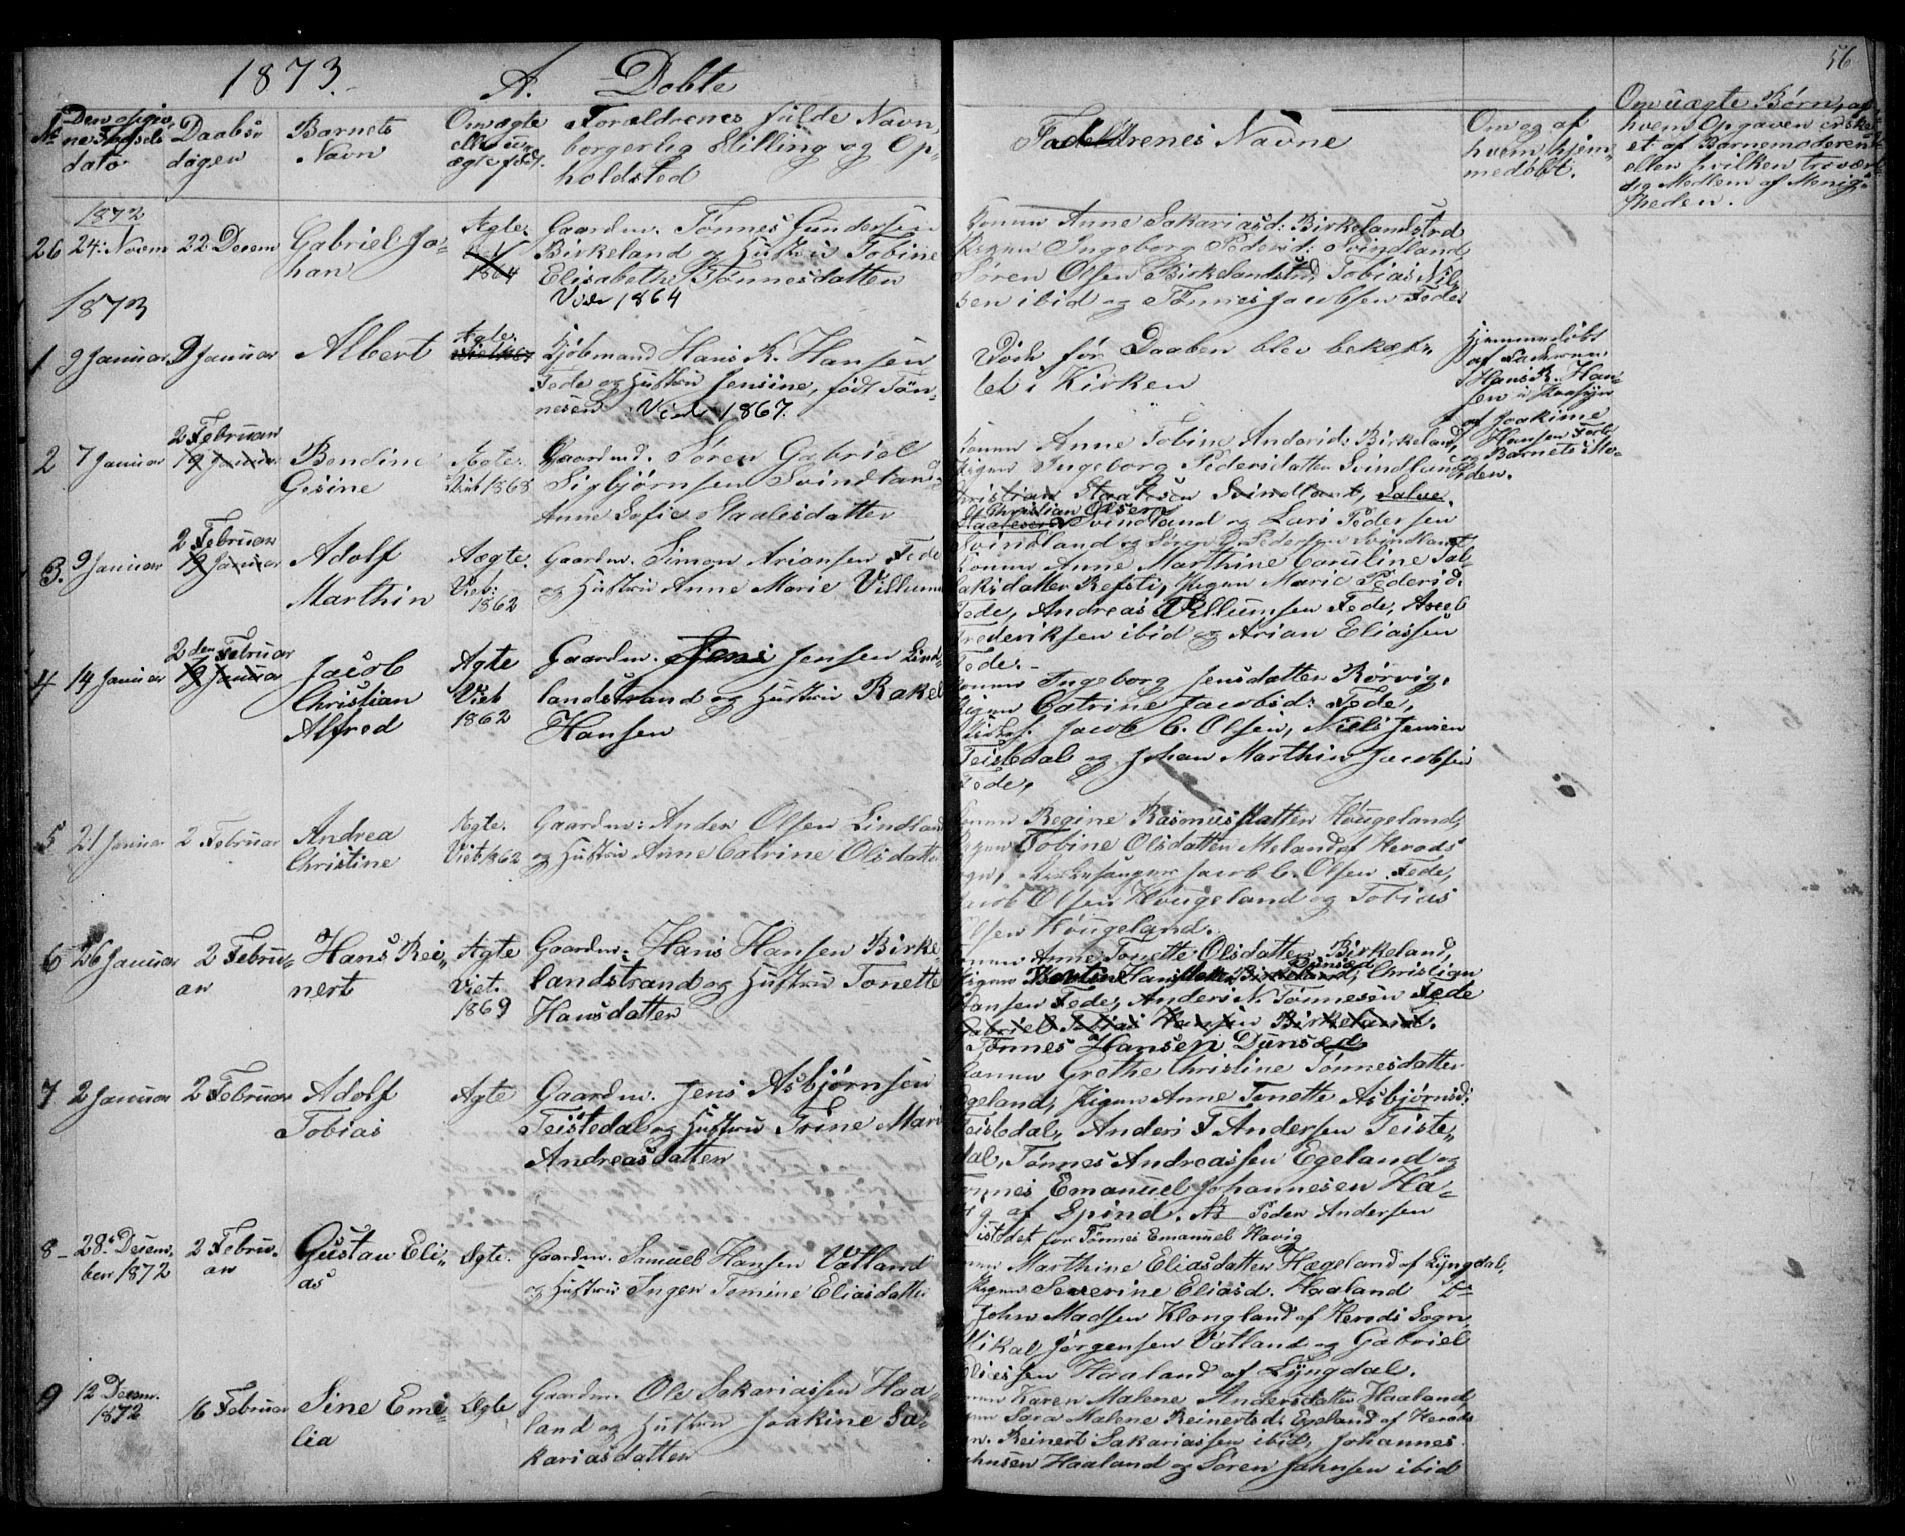 1873.
A. Døbte
56
No
Den opgiv,
ne Fødsels
dato
Daabs,
dagen
Barnets
Navn
Om ægte
eller u,
ægte født.
Forældrenes fulde Navn,
borgerlig Stilling og Op,
holdsted
Faddrenes Navne
Om og af
hvem hjem,
medøbt.
Om uægte Børn, af
hvem Opgaven er ske,
et af Barnemoderen
eller hvilken troværd
dig Medlem af Menig,
heden.
1872
26 24: Novem 22 Decem Gabriel Jo-
han
Ægte.
1864
Gaardm. Tønnes Gundersen
Birkeland og Hustru Tobine
Elisabeth Tønnesdatter
Viet 1864
Konen Anne Sakariasd: Birkelandstrd
Pigen Ingeborg Pedersd: Svindland
Søren Olsen Birkelandstrd, Tobias Nil,
sen ibid og Tønnes Jacobsen Fede
1873
1 9 Januar 9 Januar Albert
Ægte.
Kjøbmand Hans R. Hansen
Fede og Hustru Jensine, født Tøn,
nesen Viet 1867.
Død før Daaben blev bekræf,
tet i Kirken
Hjemmedøbt
af Faderen,
Hans R. Han-
sen i Paasyn
af Joakime
Hansen Fede
og Barnets Mo-
der.
2 7 Januar 2 Februar
19 Januar
Bendine
Gesine
Ægte.
Viet 1868
Gaardmd. Søren Gabriel
Sigbjørnsen Svindland
Anne Sofie Staalesdatter
Konen Anne Tobine Andersd: Birkeland,
Pigen Ingeborg Pedersdatter Svindland
Christian Staalsen Svindland, Salve
Christian Olsen
Staalesen Svindland og Lars Pedersen
Svindland og Søren P. Pedersen Svindland
3. 9 Januar 2 Februar
19 Januar
Adolf
Marthin
Aægte.
Viet:
1862
Gaardm. Simon Ariansen Fede
og Hustru Anne Marie Villums
Konen Anne Marthine Caroline Tal-
laksdatter Refsti, Pigen Marie Pedersd.
Fede, Andreas Villumsen Fede, Axel
Frederiksen ibid og Arian Eliassen
Fede.
4 14 Januar 2den Februar
19 Januar
Jacob
Christian
Alfred
Ægte
Viet
1862
Gaardm. Jens Jensen Lind-
landstrand og Hustru Rakel
Hansen
Konen Ingeborg Jensdatter Rørvig,
Pigen Catrine Jacobsd: Fede,
Kirkes. Jacob C. Olsen, Niels Jensen
Teistedal og Johan Marthin Jacobsen
Fede,
5 21 Januar 2 Februar Andrea
Christine
Ægte.
Viet 1862
Gaardm: Anders Olsen Lindland
og Hustru Anne Catrine Olsdatter
Konen Regine Rasmusdatter Høugeland,
Pigen Tobine Olsdatter Meland af Herads
Sogn, Kirkesanger Jacob C. Olsen Fede,
Jacob Olsen Høugeland og Tobias
Olsen Høugeland.
6 26 Januar 2 Febru-
ar
Hans Rei-
nert
Ægte
Viet.
1869
Gaardm. Hans Hansen Birke-
landstrand og Hustru Tonette
Hansdatter
Konen Anne Tonette Olsdatter Birkeland,
Dunsæd
Pigen Bertine Hansdatter Birkeland, Christian
Hansen Fede, Anders N. Tønnesen Fede
Gabriel Tobias Hansen Birkeland.
Tønnes Hansen Dunsæd
7 2 Januar 2 Februar Adolf
Tobias
Ægte
Gaardm. Jens Asbjørnsen
Teistedal og Hustru Trine Mari
Andreasdatter
Konen Grethe Christine Tønnesdatter
Egeland, Pigen Anne Tonette Asbjørnsd:
Teistedal, Anders T Andersen Teiste,
dal, Tønnes Andreassen Egeland og
Tønnes Emanuel Johannesen Ha-
vig af Spind. No Peder Andersen
istedet for Tønnes Emanuel Havig
8 28. Decem-
ber 1872
2 Febru-
ar
Gustav Eli-
as
Ægte.
Gaardm. Samuel Hansen Vatland
og Hustru Inger Temine Eliasdatter
Konen Marthine Eliasdatter Hægeland af Lyngdal,
Pigen Severine Eliasd. Haaland Do
John Madsen Klongland af Herads Sogn,
Mikal Jørgensen Vatland og Gabriel
Eliessen Haaland af Lyngdal.
9 12 Decem.
1872
16 Februar Sine Emi-
lia
Ægte
Gaardm. Ole Sakariassen Haa-
land og Hustru Joakine Sa-
kariasdatter
Konen Karen Malene Andersdatter Haaland,
Pigen Sara Malene Reinertsd: Egeland af Herads
Reinert Sakariassen ibid, Johannes
Johnsen Haaland og Søren Johnsen ibid